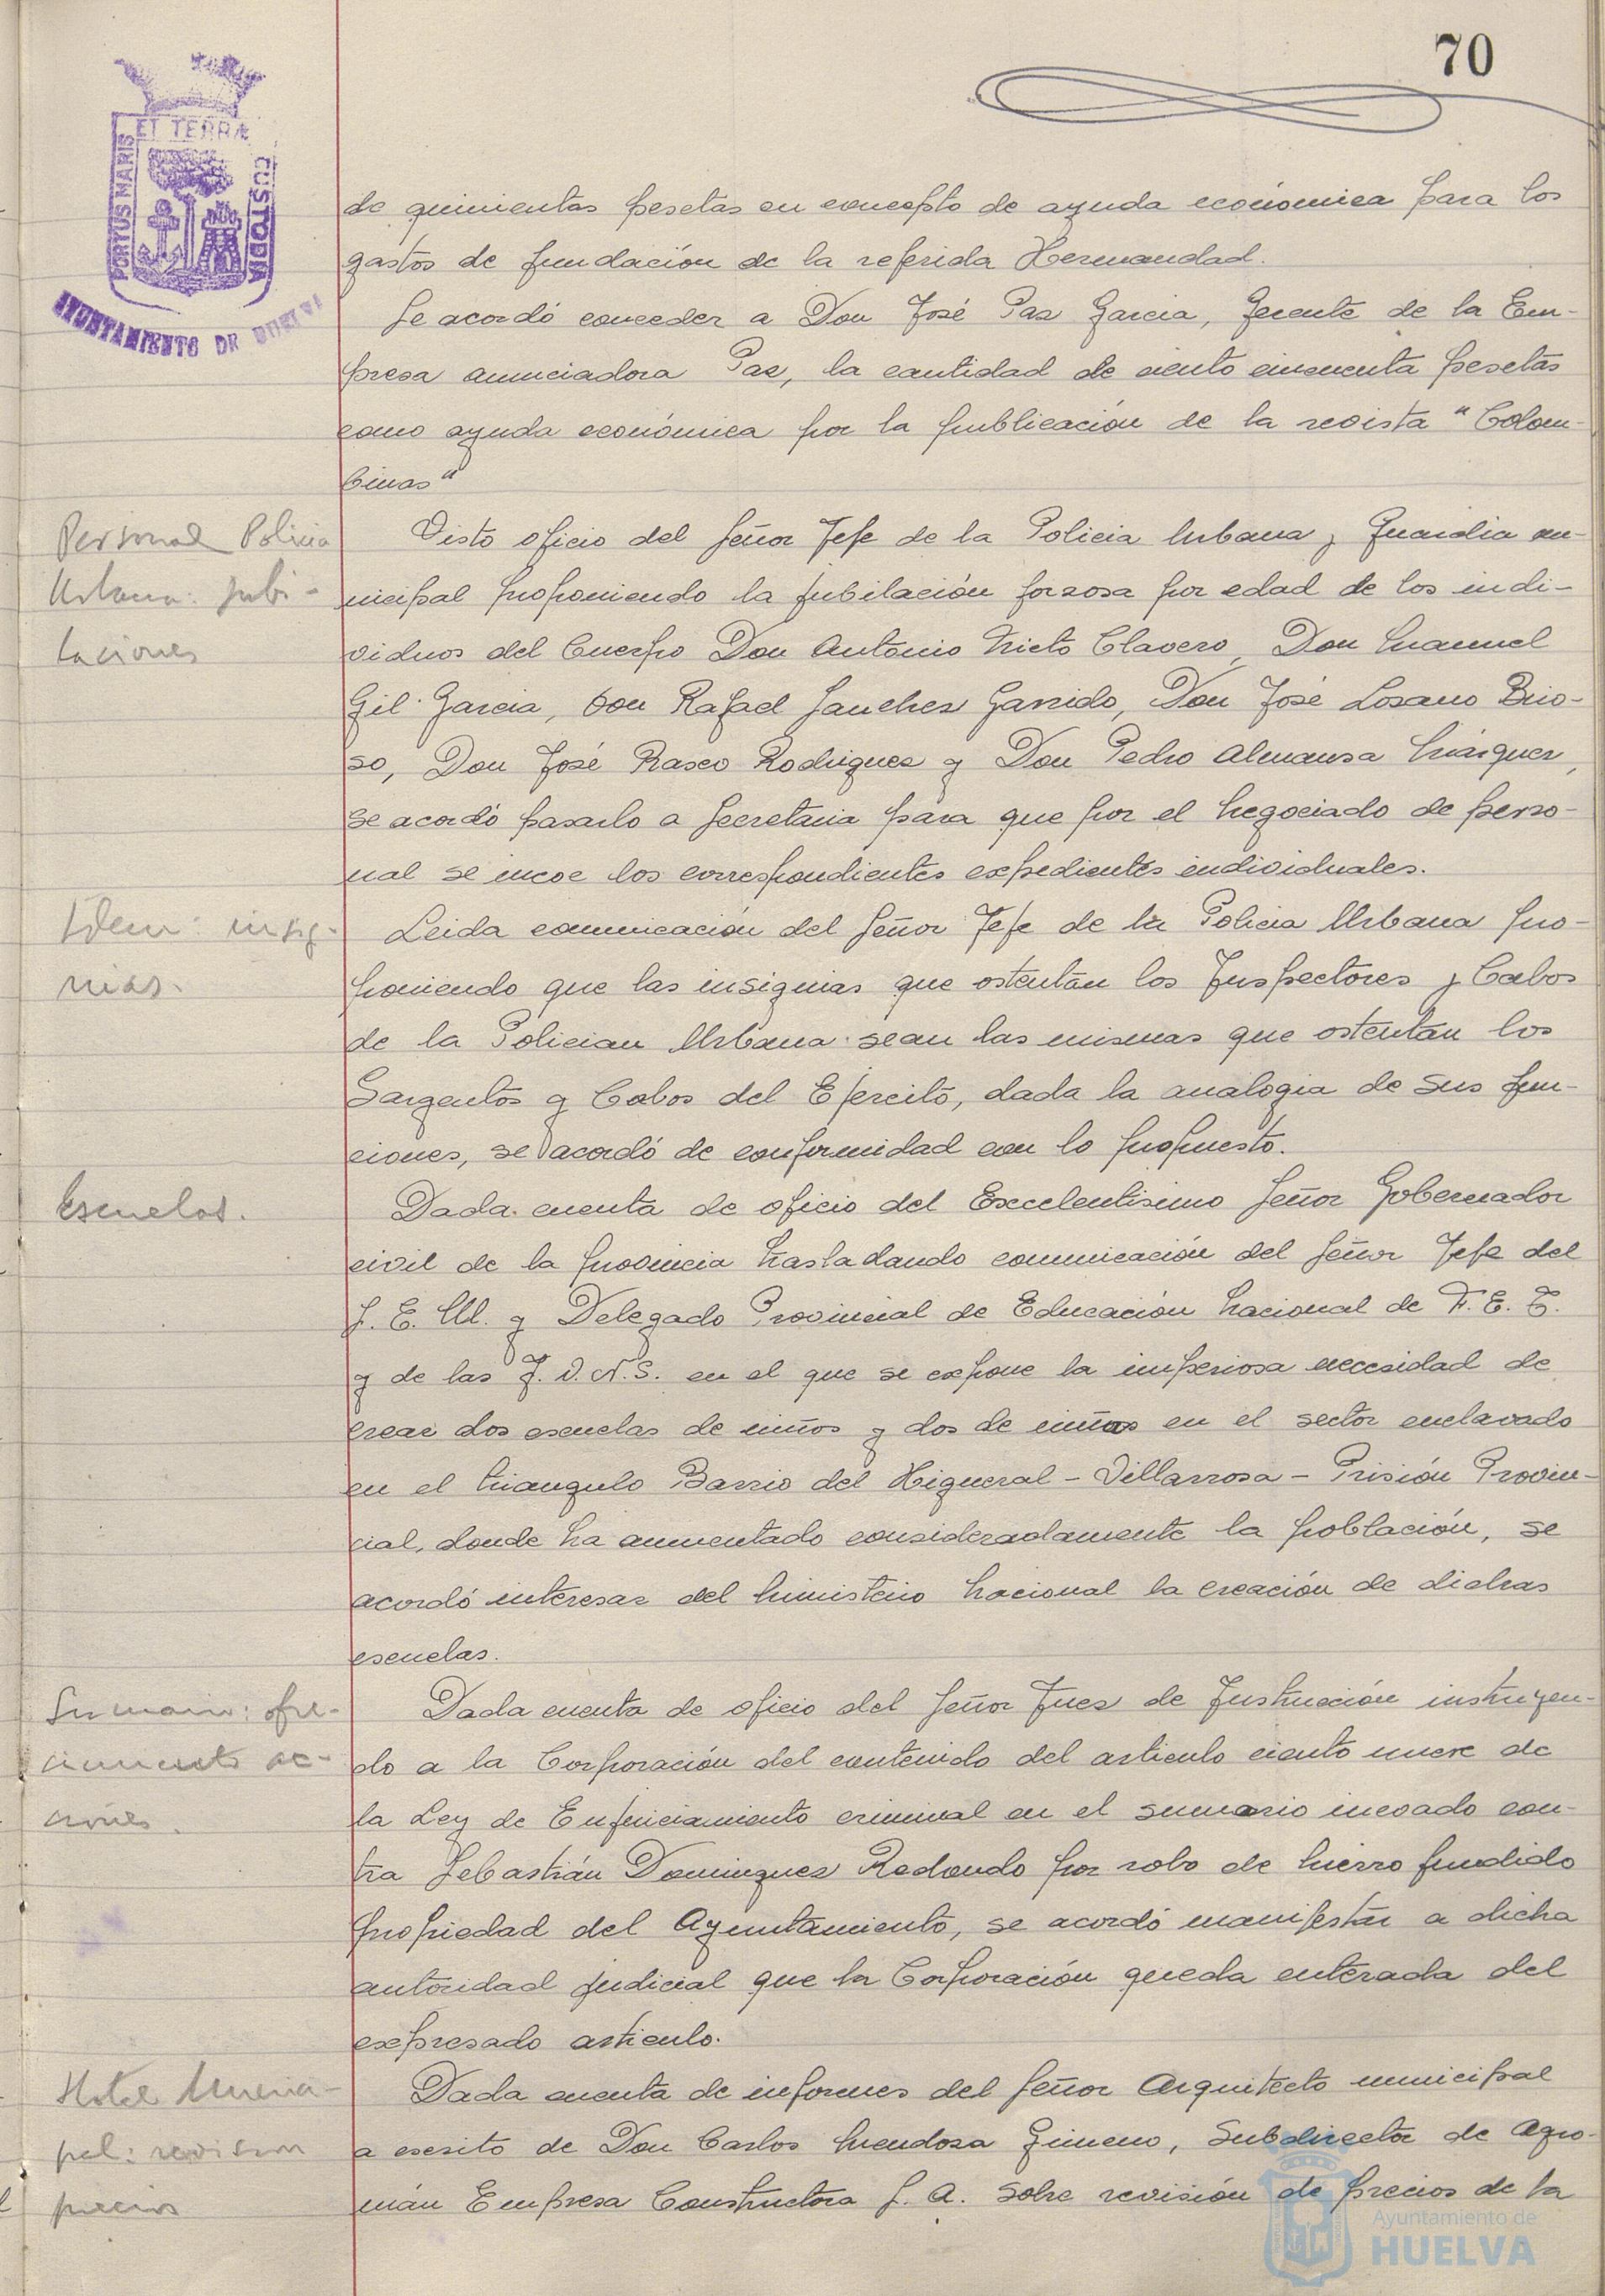 70
ET TERRÆ
PORTUS MARIS
CUSTODIA
AYUNTAMIENTO DE HUELVA
de quinientas pesetas en concepto de ayuda económica para los
gastos de fundación de la referida Hermandad.
Se acordó conceder a Don José Paz Garcia, Gerente de la Em-
presa anunciadora Paz, la cantidad de ciento cincuenta pesetas
como ayuda económica por la publicación de la revista "Colom-
binas"
Personal Policia
Urbana: jubi-
laciones
Visto oficio del Señor Jefe de la Policia Urbana y Guardia mu-
nicipal proponiendo la jubilación forzosa por edad de los indi-
viduos del Cuerpo Don Antonio Nieto Clavero, Don Manuel
Gil Garcia, Don Rafael Sanchez Garrido, Don José Lozano Brio-
so, Don José Rasco Rodriguez y Don Pedro Almansa Márquez,
se acordó pasarlo a Secretaria para que por el Negociado de perso-
nal se incoe los correspondientes expedientes individuales.
Idem: insig-
nias.
Leida comunicación del Señor Jefe de la Policia Urbana pro-
poniendo que las insignias que ostentan los Inspectores y Cabos
de la Polician Urbana sean las mismas que ostentan los
Sargentos y Cabos del Ejercito, dada la analogia de sus fun-
ciones, se acordó de conformidad con lo propuesto.
Escuelas.
Dada cuenta de oficio del Excelentisimo Señor Gobernador
civil de la provincia trasladando comunicación del Señor Jefe del
S. E. M. y Delegado Provincial de Educación Nacional de F. E. T.
y de las J. O. N. S. en el que se expone la imperiosa necesidad de
crear dos escuelas de niños y dos de niñas en el sector enclavado
en el triangulo Barrio del Higueral - Villarrosa - Prisión Provin-
cial, donde ha aumentado consideradamente la población, se
acordó interesar del Ministerio Nacional la creación de dichas
escuelas.
Sumario: ofre-
cimiento ac-
ciones.
Dada cuenta de oficio del Señor Juez de Instrucción instruyen-
do a la Corporación del contenido del articulo ciento nueve de
la Ley de Enjuiciamiento criminal en el sumario incoado con-
tra Sebastián Dominguez Redondo por robo de hierro fundido
propiedad del Ayuntamiento, se acordó manifestar a dicha
autoridad judicial que la Corporación queda enterada del
expresado articulo.
Hotel Munici-
pal: revision
precios
Dada cuenta de informes del Señor Arquitecto municipal
a escrito de Don Carlos Mendoza Gimeno, Subdirector de Agro-
mán Empresa Constructora S. A. sobre revisión de precios de la
Ayuntamiento de
HUELVA